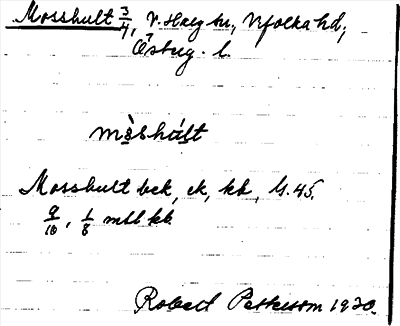 Mosshult 3/4, V. Haeg sn, Vifolka hd,
Östrg. l.
mòshált
Mosshult bek, ek, kb, ls. 45.
9/10, 1/8 mtl kb
Robert Pettersson 1930.